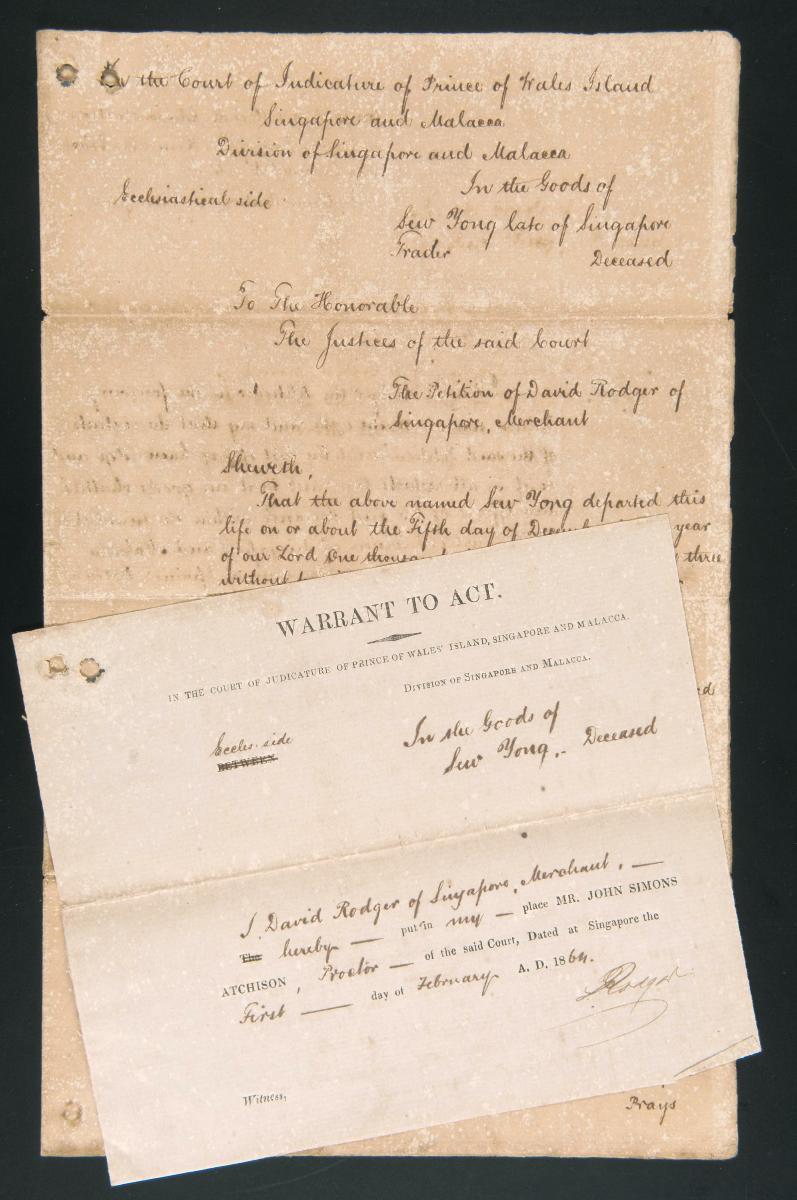 In the Court of Judicature of Prince of Wales Island
Singapore and Malacca
Division of Singapore and Malacca
Ecclesiastical side
In the Goods of
Sew Yong late of Singapore
Trader Deceased
To The Honorable
The Justices of the said Court
The Petition of David Rodger of
Singapore, Merchant
Sheweth,
That the above named Sew Yong departed this
life on or about the Fifth day of year
of our Lord One three
without
Prays
WARRANT TO ACT.
IN THE COURT OF JUDICATURE OF PRINCE OF WALES' ISLAND, SINGAPORE AND MALACCA.
DIVISION OF SINGAPORE AND MALACCA.
Eccles. side
BETWEEN
In the Goods of
Sew Yong,- Deceased
I, David Rodger of Singapore, Merchant, —
The hereby — put in my — place MR. JOHN SIMONS
ATCHISON, Proctor — of the said Court, Dated at Singapore the
First — day of February A. D. 1864.
Witness,